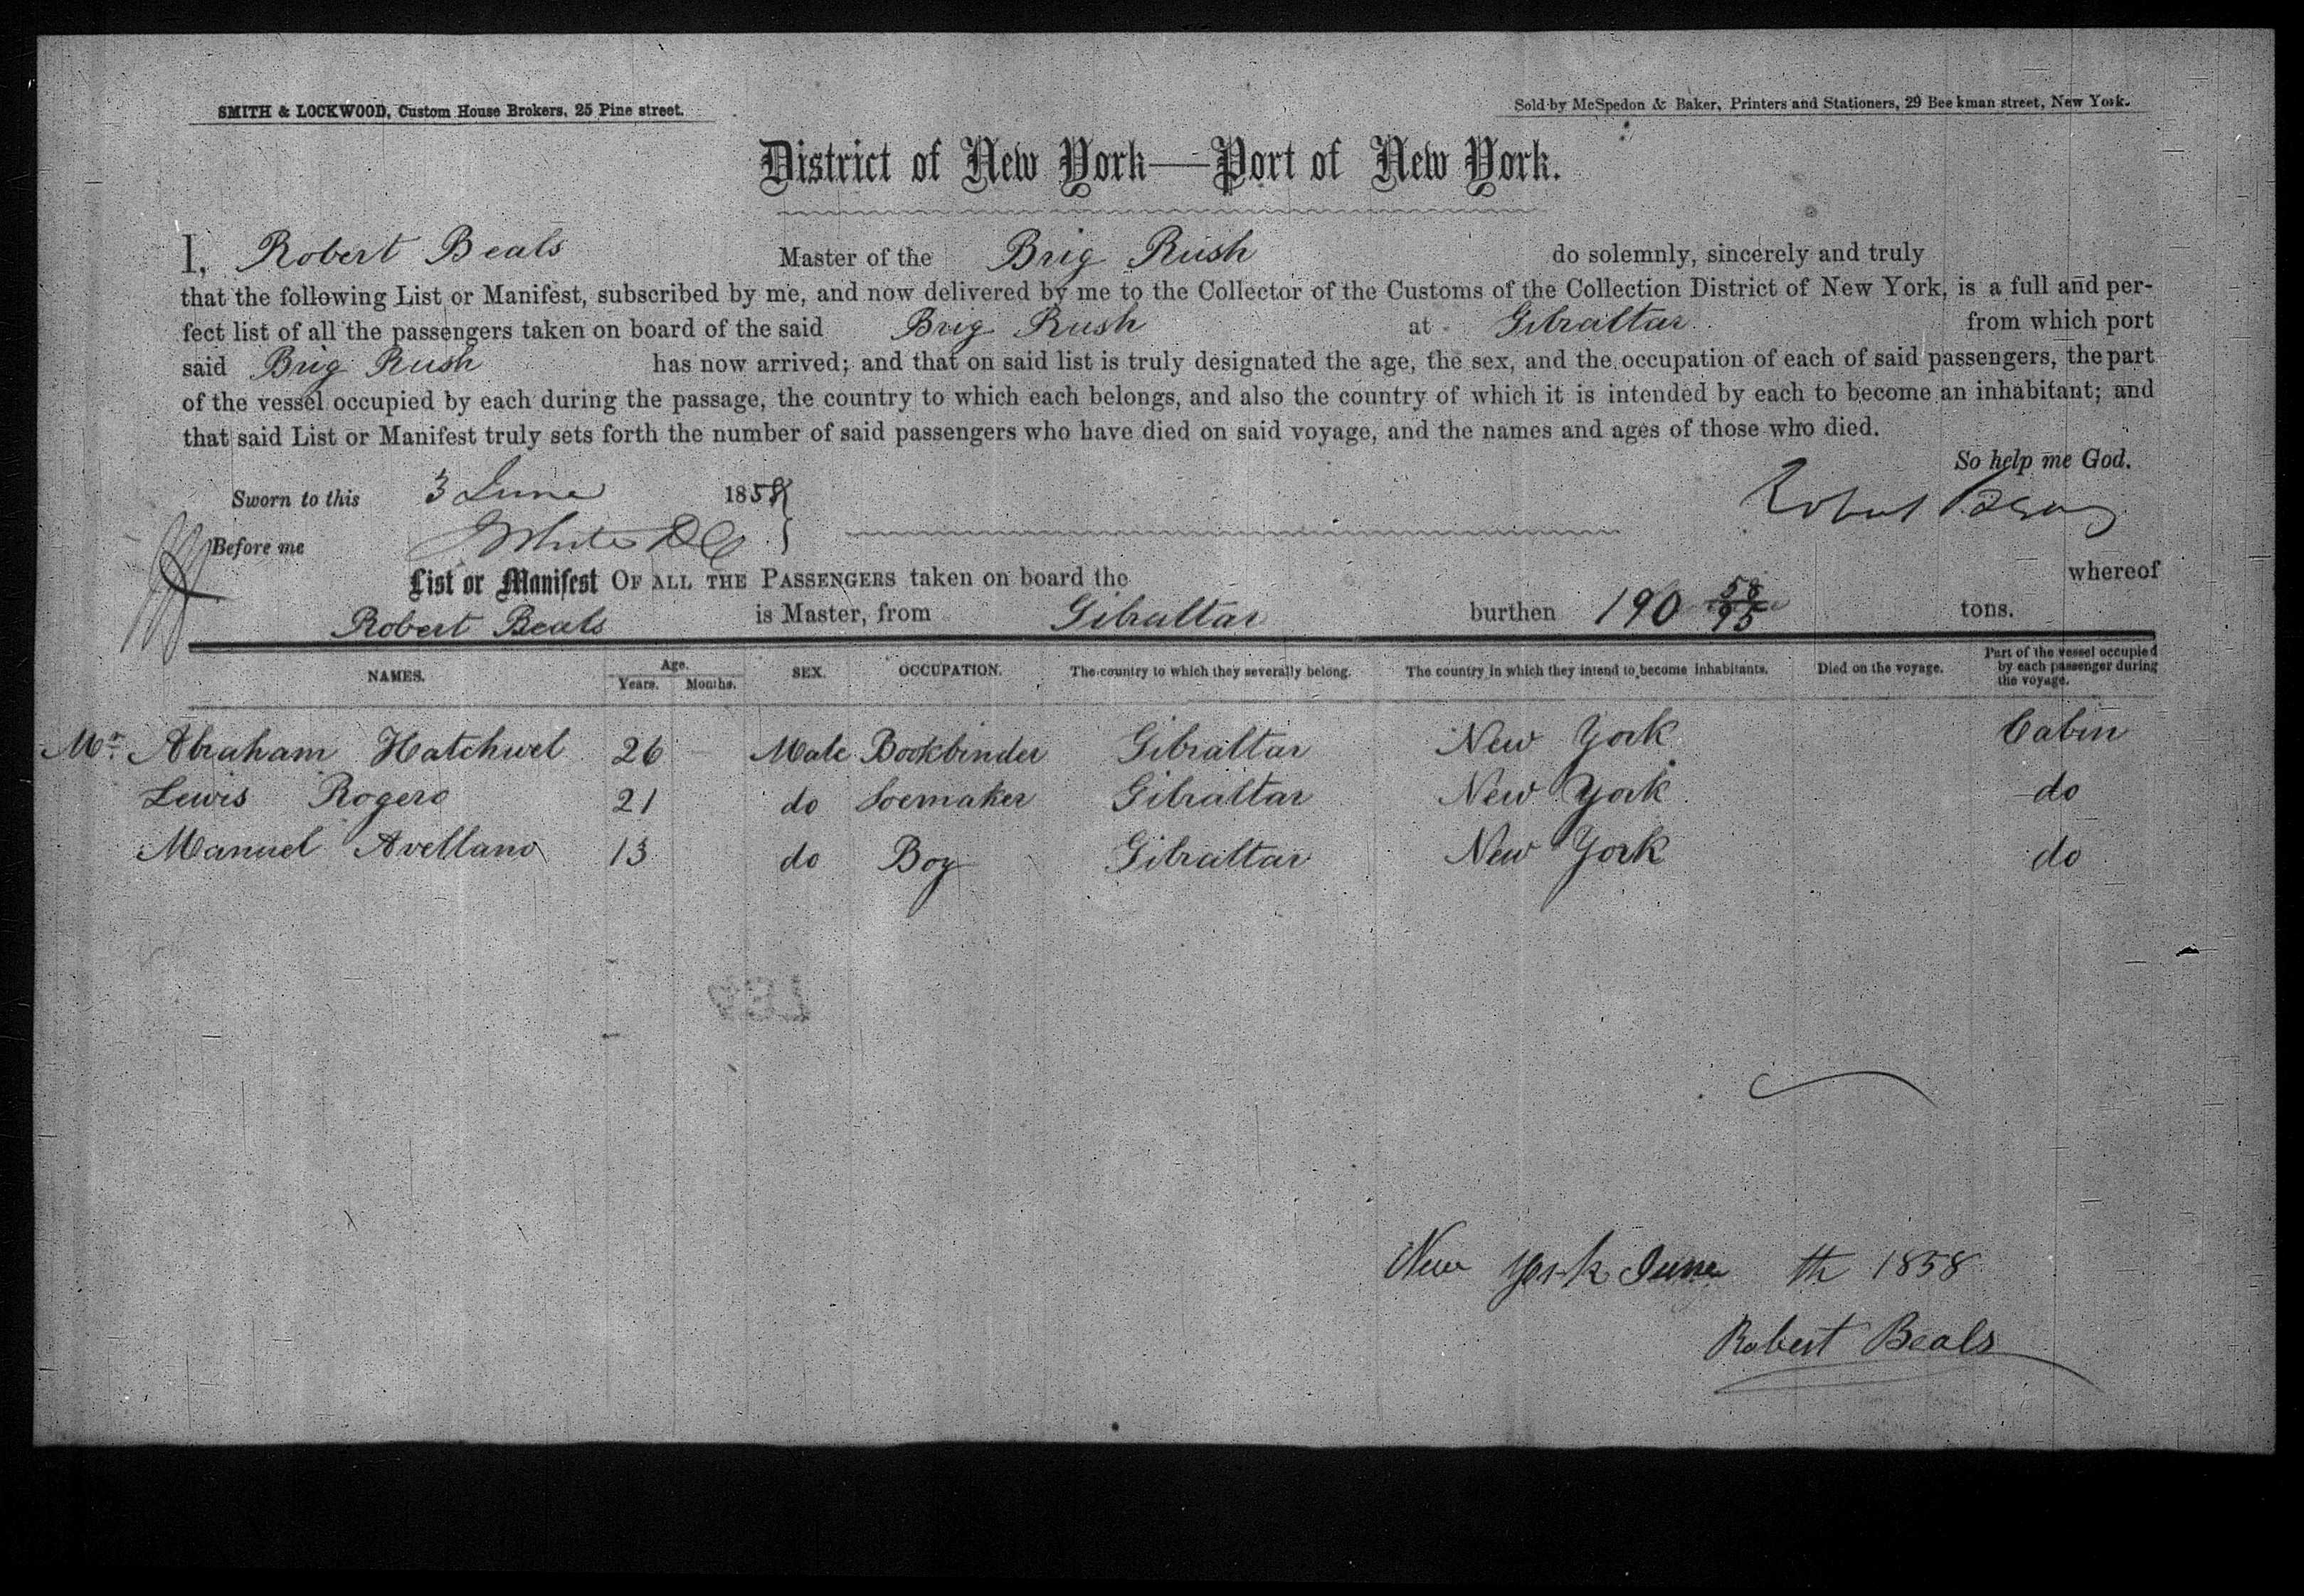 SMITH & LOCKWOOD, Custom House Brokers, 25 Pine street.
Sold by McSpedon & Baker, Printers and Stationers, 29 Beekman street, New York.
District of New York—Port of New York.
I, Robert Beals Master of the Brig Rush do solemnly, sincerely and truly
that the following List or Manifest, subscribed by me, and now delivered by me to the Collector of the Customs of the Collection District of New York, is a full and per-
fect list of all the passengers taken on board of the said Brig Rush at Gibraltar from which port
said Brig Rush has now arrived; and that on said list is truly designated the age, the sex, and the occupation of each of said passengers, the part
of the vessel occupied by each during the passage, the country to which each belongs, and also the country of which it is intended by each to become an inhabitant; and
that said List or Manifest truly sets forth the number of said passengers who have died on said voyage, and the names and ages of those who died.
So help me God.
Sworn to this 3 June 1858
Robert Beals
Before me White
List or Manifest OF ALL THE PASSENGERS taken on board the whereof
Robert Beals is Master, from Gibraltar burthen 190 58/95 tons.
NAMES. Age. Years. Months. SEX. OCCUPATION. The country to which they severally belong. The country in which they intend to become inhabitants. Died on the voyage. Part of the vessel occupied by each passenger during the voyage.
Mr. Abraham Hatchwel 26 Male Bookbinder Gibraltar New York Cabin
Lewis Rogero 21 do Soemaker Gibraltar New York do
Manuel Avellano 13 do Boy Gibraltar New York do
New York June th 1858
Robert Beals